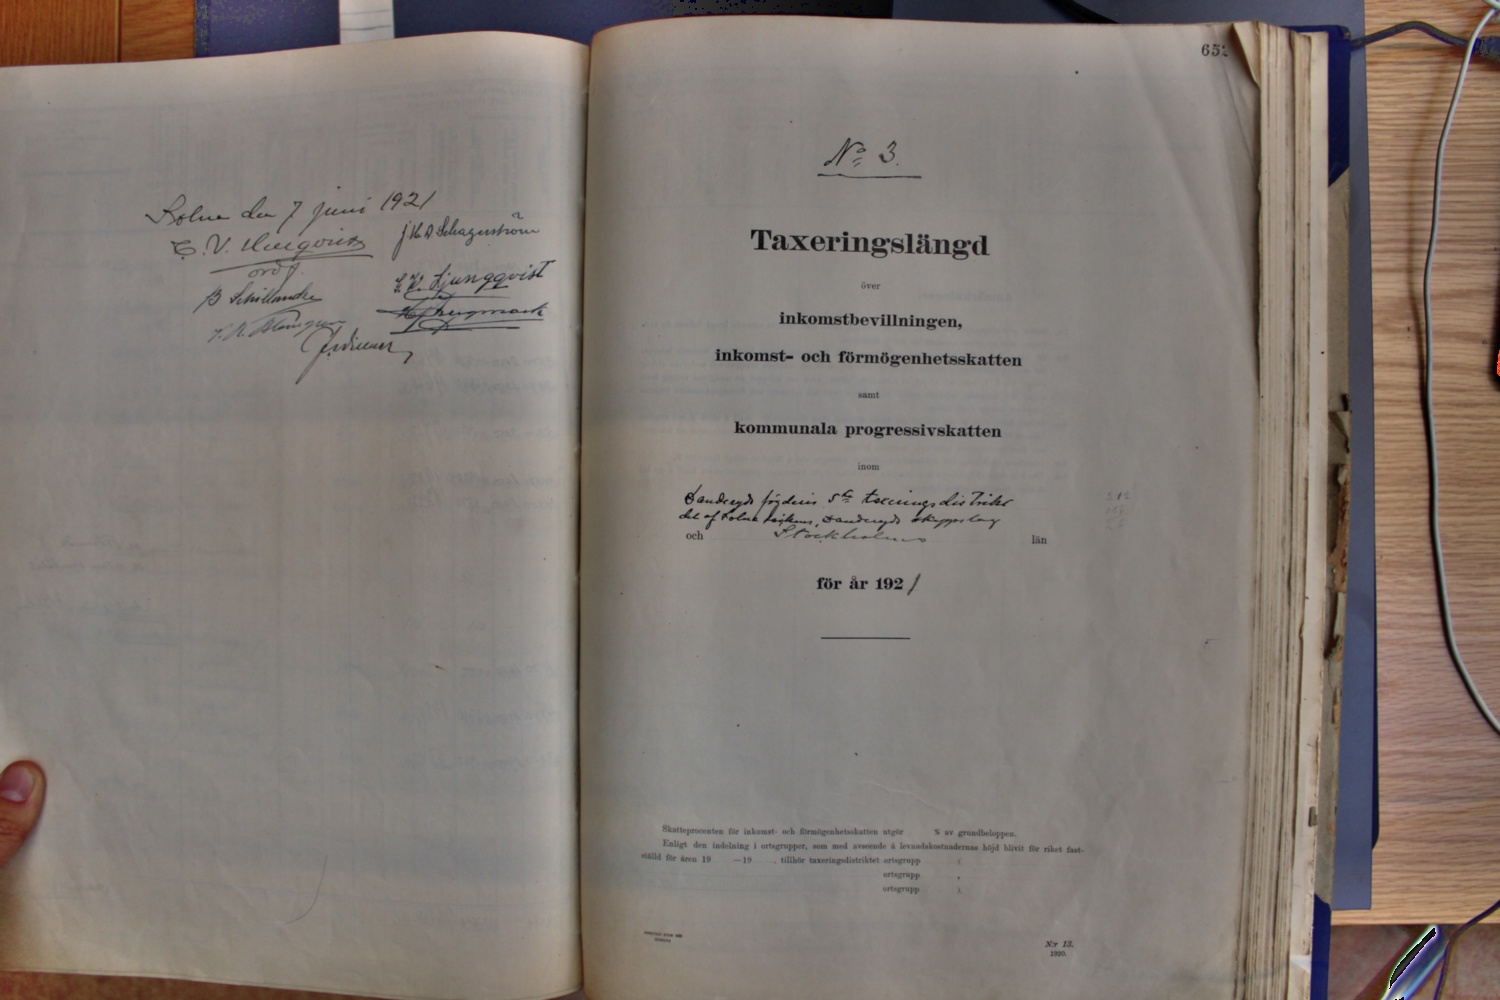 Solna den 7 juni 1921
ordf.
B Schillander
J H A Schagerström
Ljungqvist
65
No 3.
Taxeringslängd
över
inkomstbevillningen,
inkomst- och förmögenhetsskatten
samt
kommunala progressivskatten
inom
Danderyds fögderis 5te taxeringsdistrikt
del af Solna socken, Danderyds skeppslag
och Stockholms län
för år 1921
Skatteprocenten för inkomst- och förmögenhetsskatten utgör % av grundbeloppen.
Enligt den indelning i ortsgrupper, som med avseende å levnadskostnadernas höjd blivit för riket fast-
ställd för åren 19 —19 , tillhör taxeringsdistriktet ortsgrupp (
ortsgrupp ,
ortsgrupp ).
N:r 13.
1920.